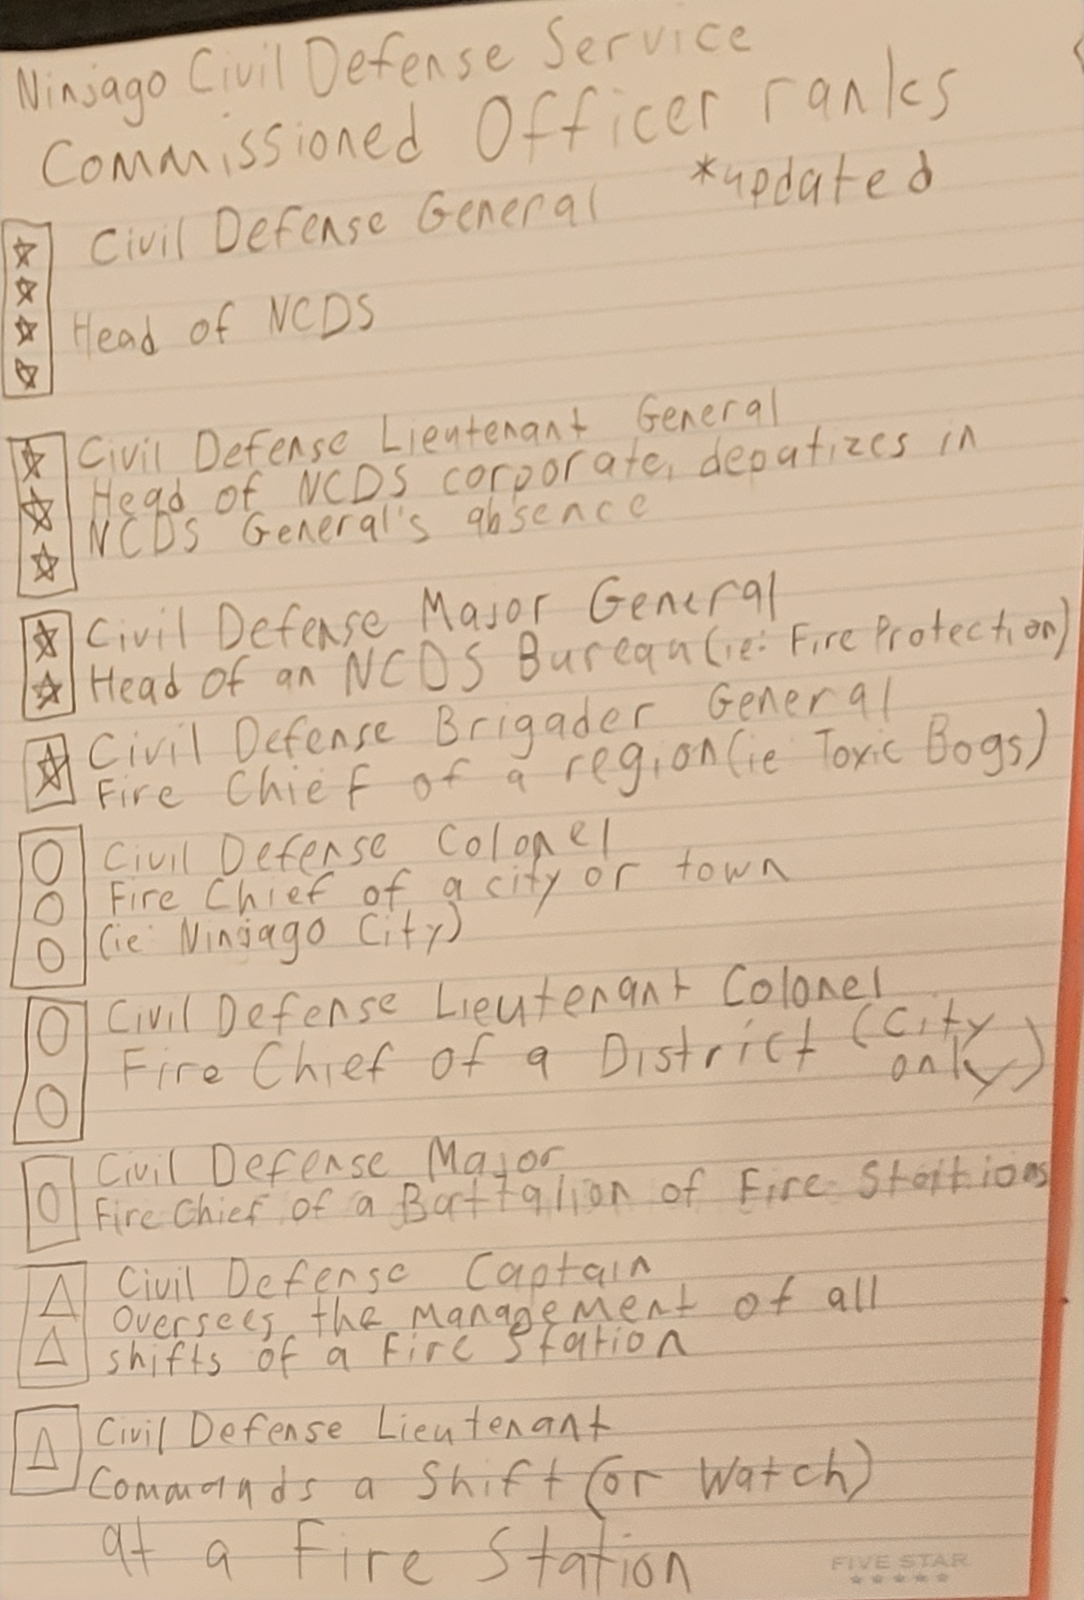 Ninjago Civil Defense Service
Commissioned Officer ranks
*updated
Civil Defense General
Head of NCDS
Civil Defense Lieutenant General
Head of NCDS corporate, deputizes in
NCDS General's absence
Civil Defense Major General
Head of an NCDS Bureau (ie: Fire Protection)
Civil Defense Brigader General
Fire Chief of a region (ie Toxic Bogs)
Civil Defense Colonel
Fire Chief of a city or town
(ie: Ninjago City)
Civil Defense Lieutenant Colonel
Fire Chief of a District (City
only)
Civil Defense Major
Fire Chief of a Battalion of Fire Stations
Civil Defense Captain
Oversees the management of all
shifts of a Fire Station
Civil Defense Lieutenant
Commands a Shift (or Watch)
at a Fire Station
FIVE STAR